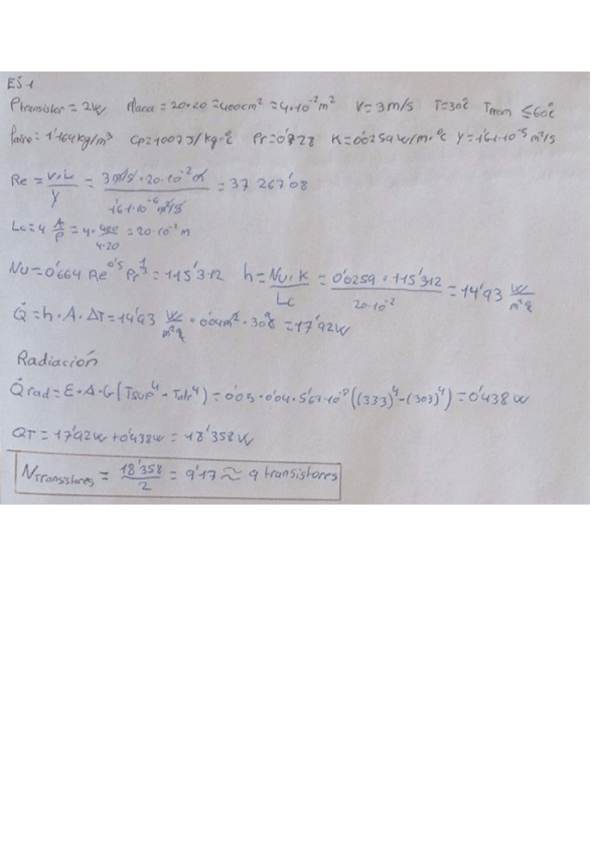 EJ 1
Ptransistor = 2W Placa = 20·20 = 400cm² = 4·10⁻² m² V = 3 m/s T = 30°C Tmax ≤ 60°C
ρaire = 1'164 kg/m³ Cp = 1007 J/kg·°C Pr = 0'728 K = 0'0259 W/m·°C γ = 1'61·10⁻⁵ m²/s
Re = V·Lc/γ = 3 m/s · 20·10⁻² m / 1'61·10⁻⁵ m²/s = 37 267'08
Lc = 4 A/P = 4· 400/4·20 = 20·10⁻² m
Nu = 0'664 Re^0'5 Pr^1/3 = 115'312 h = Nu·K/Lc = 0'0259 · 115'312 / 20·10⁻² = 14'93 W/m²°C
Q̇ = h·A·ΔT = 14'93 W/m²°C · 0'04m² · 30°C = 17'92W
Radiación
Q̇rad = ε·A·σ(Tsup⁴ - Talr⁴) = 0'05·0'04·5'67·10⁻⁸ ((333)⁴-(303)⁴) = 0'438 W
QT = 17'92W + 0'438W = 18'358 W
NTransistores = 18'358/2 = 9'17 ≈ 9 transistores